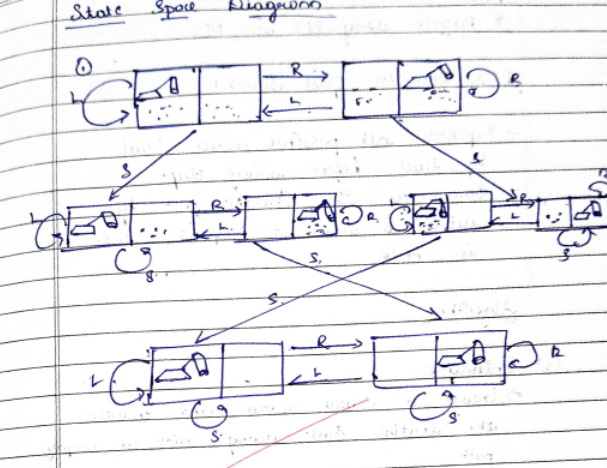 State Space Diagram
①
L R L R
S S
L R L R L R L R
S S
S S
L R L R
S S